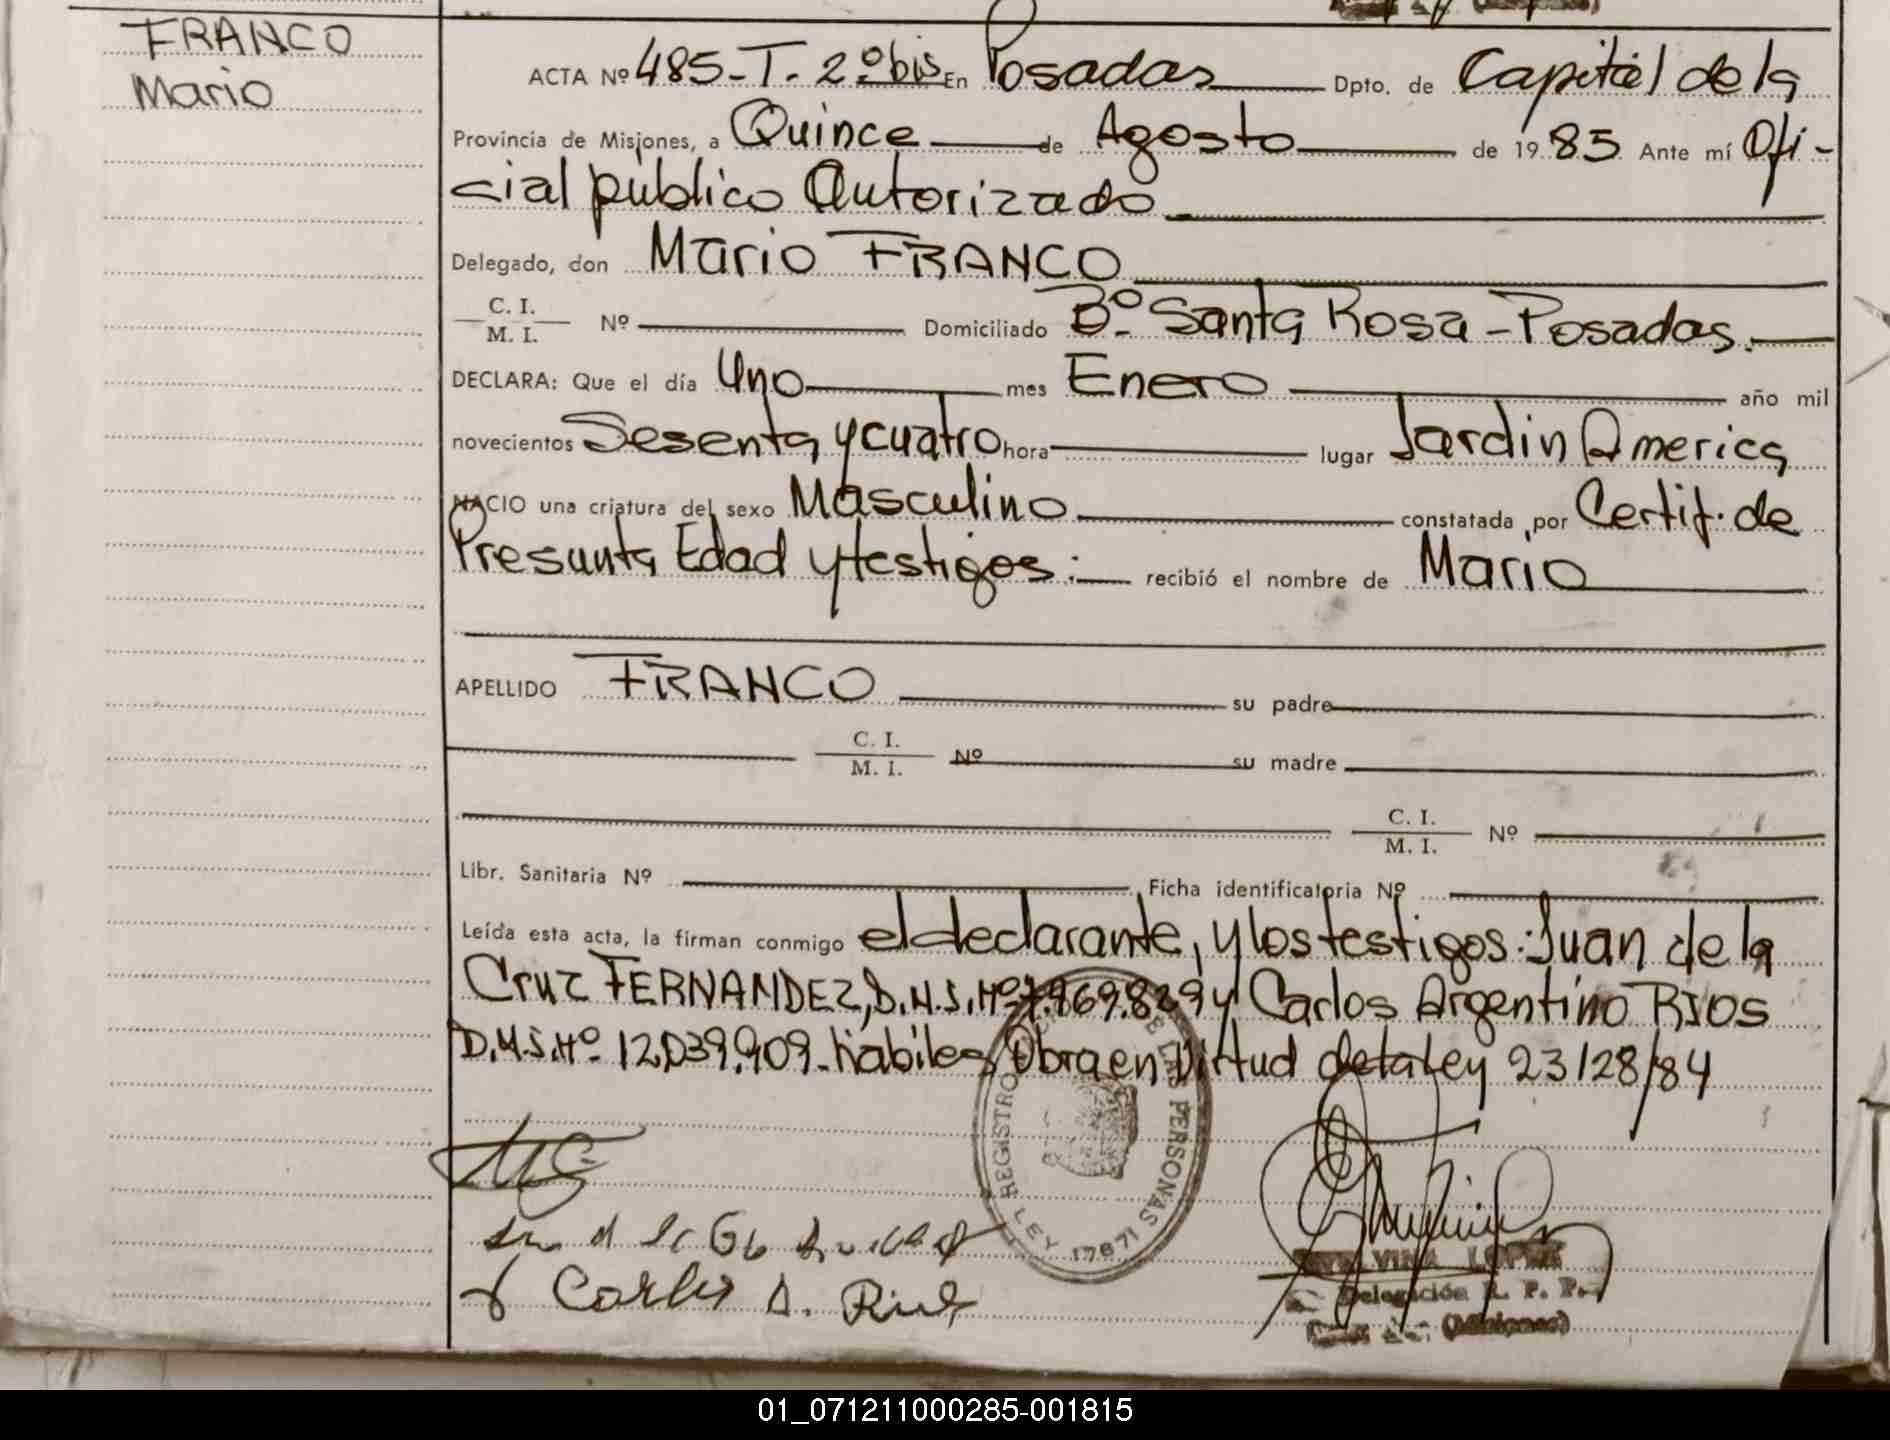 FRANCO
Mario
ACTA Nº 485-T. 2º bis En Posadas Dpto. de Capital de la
Provincia de Misiones, a Quince de Agosto de 1985 Ante mí Ofi-
cial público Autorizado
Delegado, don Mario FRANCO
C. I.
M. I. Nº Domiciliado Bº Santa Rosa - Posadas.
DECLARA: Que el día Uno mes Enero año mil
novecientos Sesenta y cuatro hora lugar Jardin America
NACIO una criatura del sexo Masculino constatada por Certif. de
Presunta Edad y testigos: recibió el nombre de Mario
APELLIDO FRANCO su padre
C. I.
M. I. Nº su madre
C. I.
M. I. Nº
Libr. Sanitaria Nº Ficha identificatoria Nº
Leída esta acta, la firman conmigo el declarante, y los testigos: Juan de la
Cruz FERNANDEZ, D.N.I. Nº y Carlos Argentino RIOS
D.N.I. Nº 12.039.909 - hábiles, Obra en Virtud de la Ley 23128/84
REGISTRO DE LAS PERSONAS
LEY 17671
Carlos A. Rios
LOPEZ
Delegación R. P. P.
(Misiones)
01_071211000285-001815